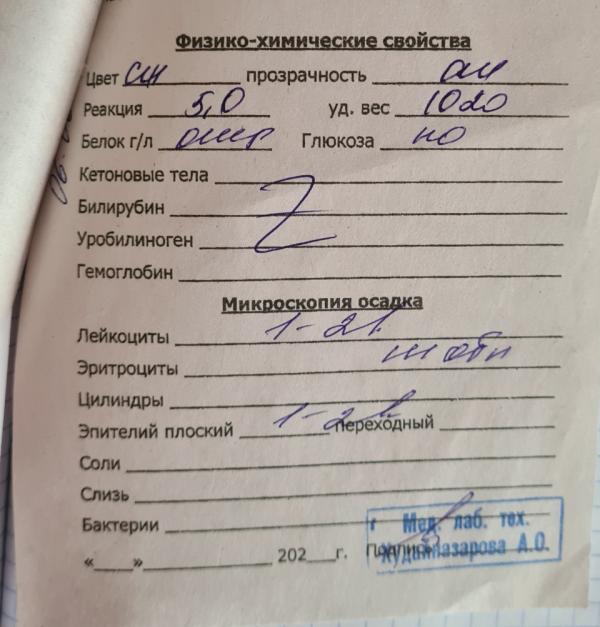 Физико-химические свойства
Цвет с/ж прозрачность
Реакция 5,0 уд. вес 1020
Белок г/л отр Глюкоза но
Кетоновые тела
Билирубин
Уробилиноген
Гемоглобин
Микроскопия осадка
Лейкоциты 1-2
Эритроциты не обн
Цилиндры
Эпителий плоский 1-2 переходный
Соли
Слизь
Бактерии
« » 202 г. Подпись
Мед. лаб. тех.
Худайназарова А.О.